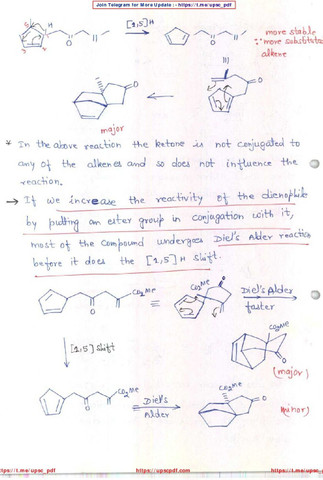 Join Telegram for More Update : - https://t.me/upsc_pdf
[1,5]H
more stable
∵ more substitute
alkene
major
* In the above reaction the ketone is not conjugated to
any of the alkenes and so does not influence the
reaction.
→ If we increase the reactivity of the dienophile
by putting an ester group in conjugation with it,
most of the compound undergoes Diel's Alder reaction
before it does the [1,5] H shift.
CO2Me
≡
CO2Me
Diel's Alder
faster
CO2Me
(major)
[1,5] shift
CO2Me
Diel's
Alder
CO2Me
(minor)
https://t.me/upsc_pdf
https://upscpdf.com
https://t.me/upsc_